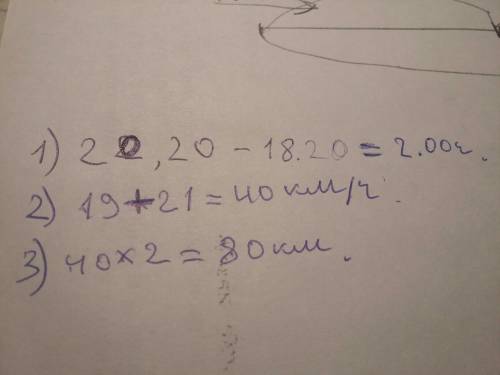 1) 20,20 - 18.20 = 2.00ч.
2) 19 + 21 = 40 км/ч.
3) 40 × 2 = 80 км.